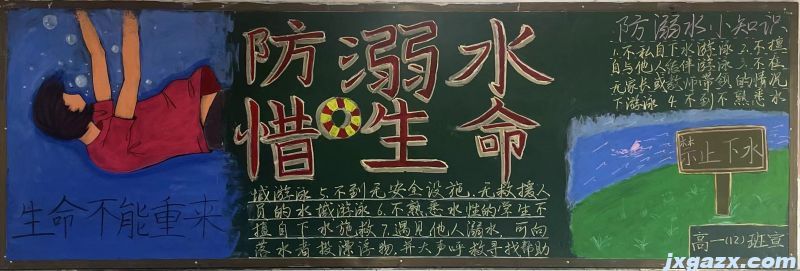 防溺水
惜生命
生命不能重来
防溺水小知识
1.不私自下水游泳 2.不擅
自与他人结伴游泳 3.不在
无家长或教师带领的情况
下游泳 4.不到不熟悉水
域游泳 5.不到无安全设施、无救援人
员的水域游泳 6.不熟悉水性的学生不
擅自下水施救 7.遇见他人溺水,可向
落水者投漂浮物,并大声呼救寻找帮助
禁止下水
高一(12)班宣
jxgazx.com